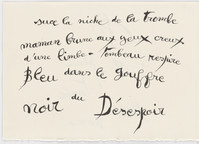 suce la niche de la trombe
maman brune aux yeux creux
d'une limbe - tombeau respire
Bleu dans le gouffre
noir du Désespoir